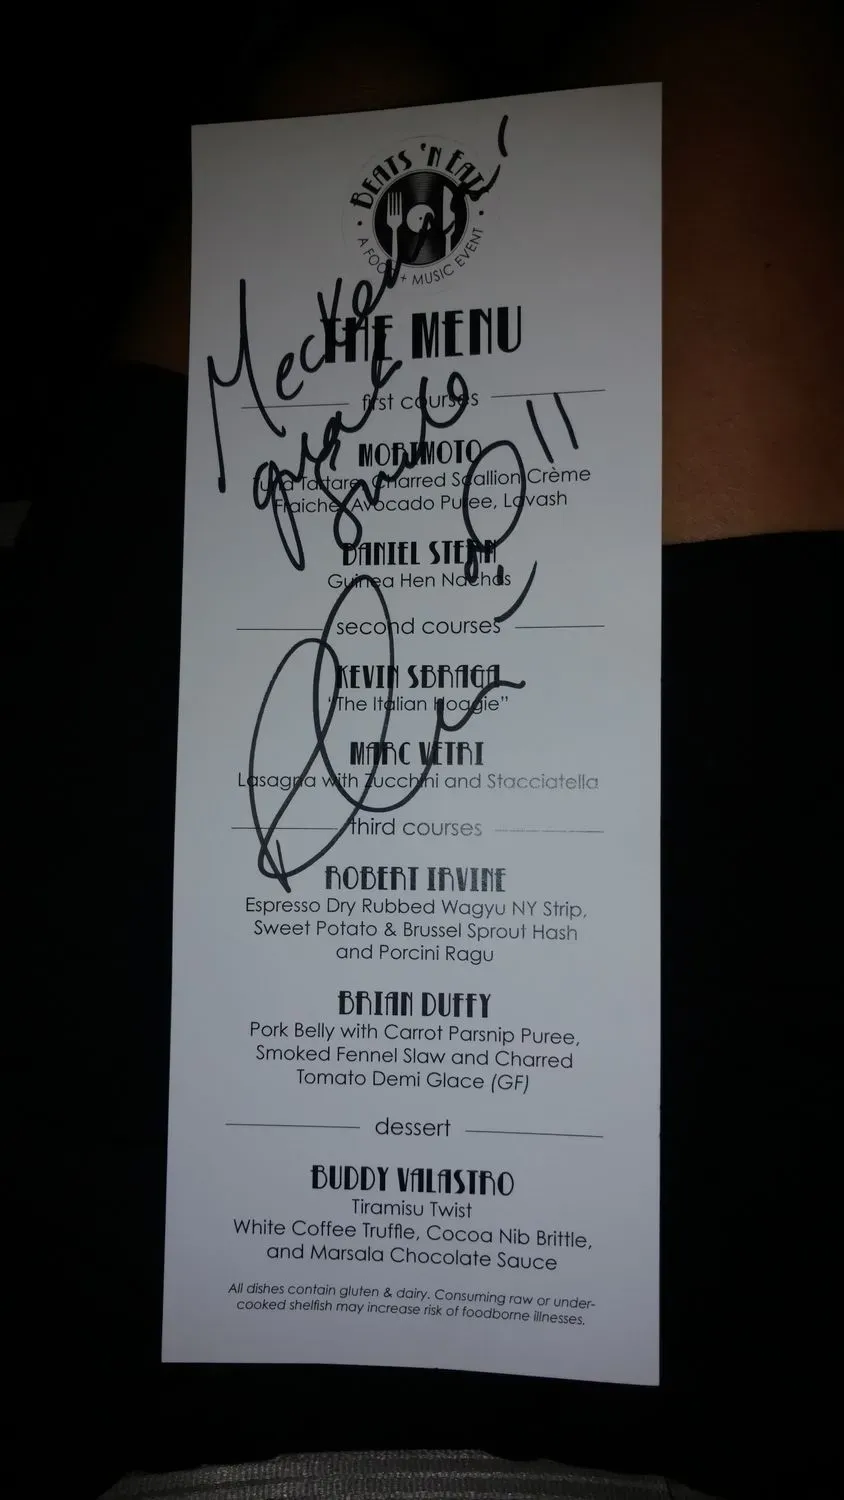 BEATS 'N EATS
A FOOD + MUSIC EVENT
THE MENU
first courses
MORIMOTO
Tuna Tartare, Charred Scallion Crème
Fraiche, Avocado Puree, Lavash
DANIEL STERN
Guinea Hen Nachos
second courses
KEVIN SBRAGA
"The Italian Hoagie"
MARC VETRI
Lasagna with Zucchini and Stacciatella
third courses
ROBERT IRVINE
Espresso Dry Rubbed Wagyu NY Strip,
Sweet Potato & Brussel Sprout Hash
and Porcini Ragu
BRIAN DUFFY
Pork Belly with Carrot Parsnip Puree,
Smoked Fennel Slaw and Charred
Tomato Demi Glace (GF)
dessert
BUDDY VALASTRO
Tiramisu Twist
White Coffee Truffle, Cocoa Nib Brittle,
and Marsala Chocolate Sauce
All dishes contain gluten & dairy. Consuming raw or under-
cooked shelfish may increase risk of foodborne illnesses.
great
Smile